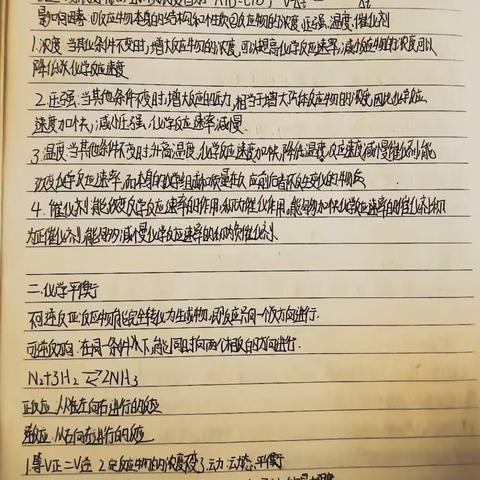 影响因素：①反应物本身的结构和性质②反应物的浓度、压强、温度、催化剂
1.浓度：当其他条件不变时，增大反应物的浓度，可以提高化学反应速率，减小反应物的浓度可以
降低化学反应速度
2.压强：当其他条件不变时，增大反应的压力，相当于增大气体反应物的浓度，因此化学反应
速度加快，减小压强，化学反应速率减慢.
3.温度：当其他条件不变时，升高温度，化学反应速度加快，降低温度，反应速度减慢催化剂：能
改变化学反应速率，而本身的化学组成和质量在反应前后都不发生变化的物质
4.催化剂：能改变反学反应速率的作用，称为催化作用，能够加快化学反应速率的催化剂称
为正催化剂，能够减慢化学反应速率的称为负催化剂.
二.化学平衡
不可逆反应：反应物能完全转化为生成物，即反应只向一个方向进行.
可逆反应：在同一条件下，能同时向两个相反的方向进行.
N₂+3H₂⇌2NH₃
正反应：从左向右进行的反应
逆反应：从右向左进行的反应
1.等V正=V逆 2.定反应物的浓度 3.动：动态平衡